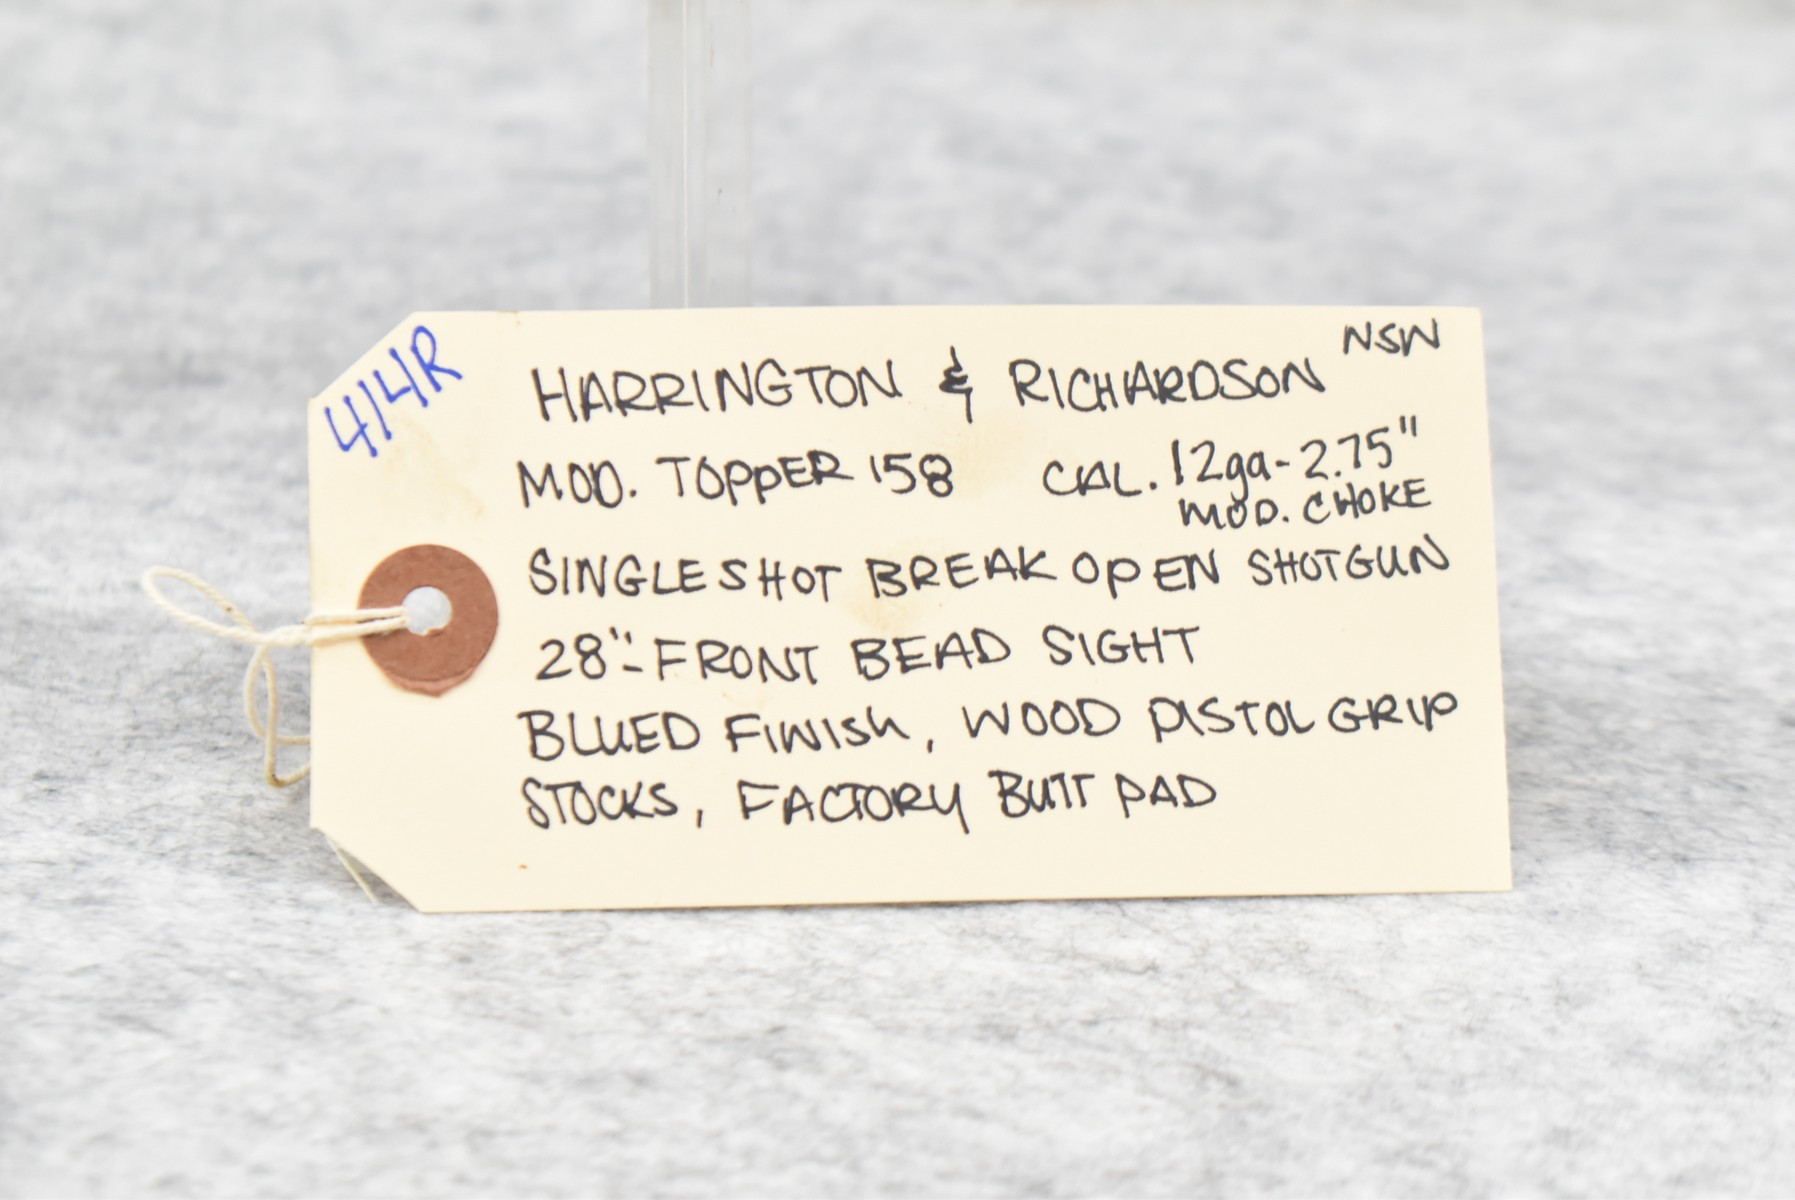 414R
HARRINGTON & RICHARDSON NSW
MOD. TOPPER 158 CAL. 12ga-2.75"
MOD. CHOKE
SINGLE SHOT BREAK OPEN SHOTGUN
28"-FRONT BEAD SIGHT
BLUED FINISh, WOOD PISTOL GRIP
STOCKS, FACTORY BUTT PAD